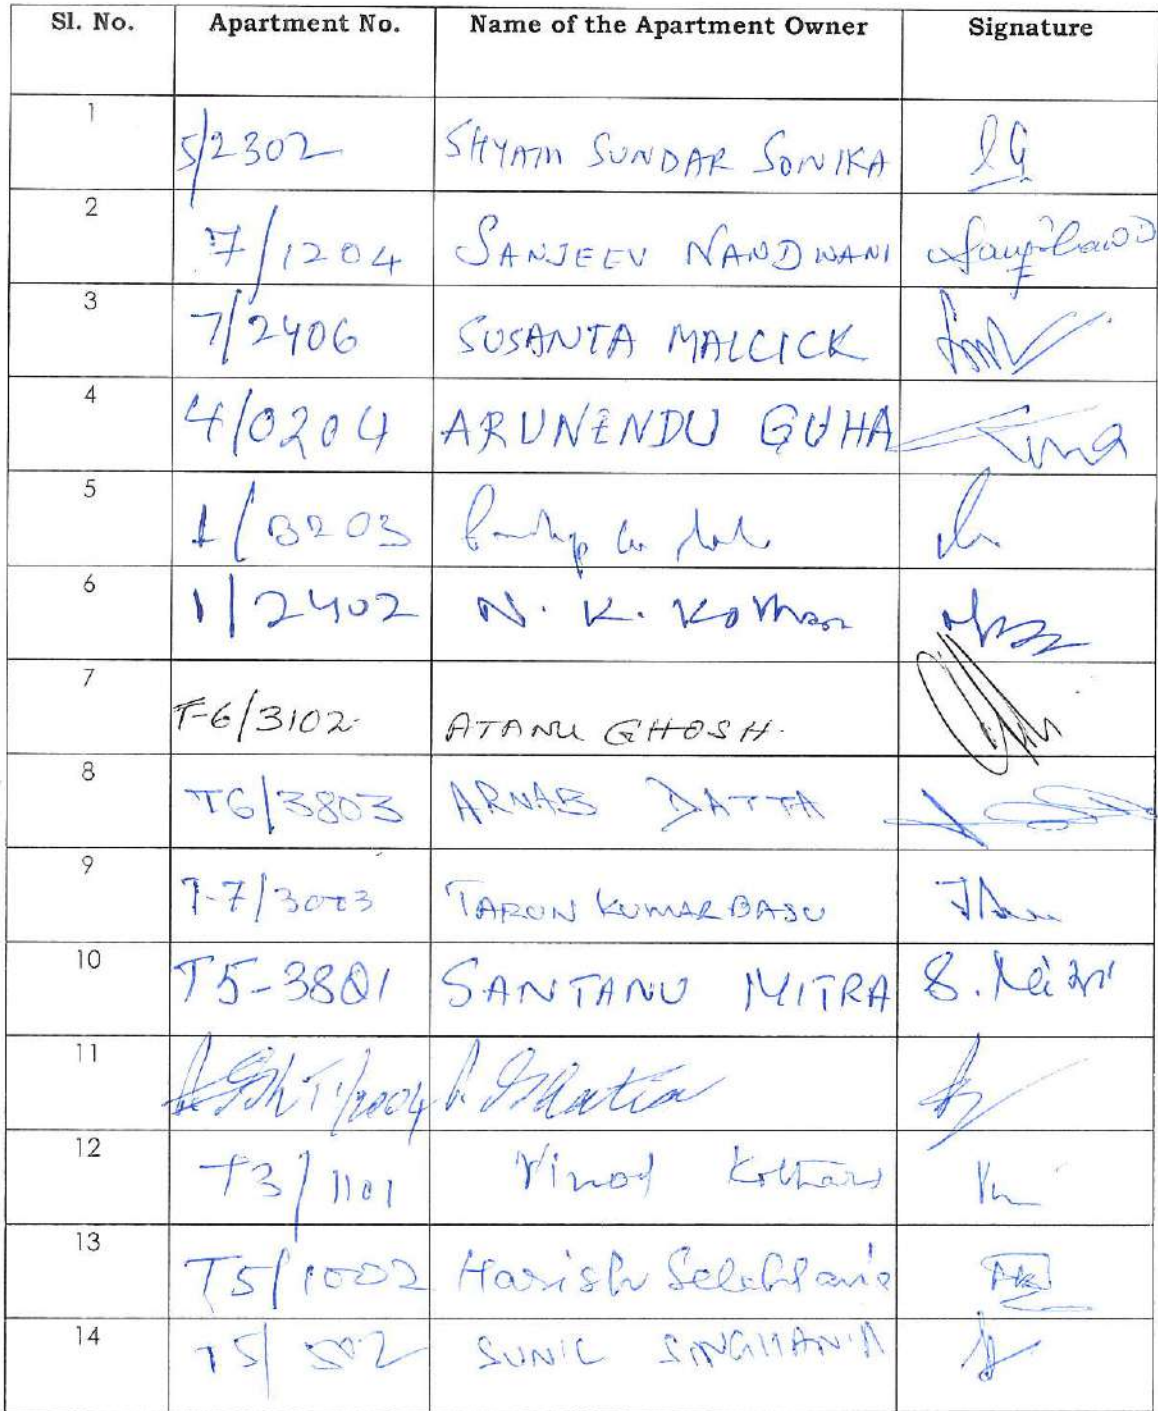 Sl. No. Apartment No. Name of the Apartment Owner Signature
1 5/2302 SHYAM SUNDAR SONIKA SG
2 7/1204 SANJEEV NANDWANI
3 7/2406 SUSANTA MALLICK
4 4/0204 ARUNENDU GUHA
5 1/3203
6 1/2402 N. K. Kothari
7 T-6/3102 ATANU GHOSH.
8 T6/3803 ARNAB DATTA
9 T-7/3003 TARUN KUMAR BASU
10 T5-3801 SANTANU MITRA S. Mitra
11 T1/2004
12 T3/1101 Vinod Kothari
13 T5/1002 Harish
14 T5/502 SUNIL SINGHANIA